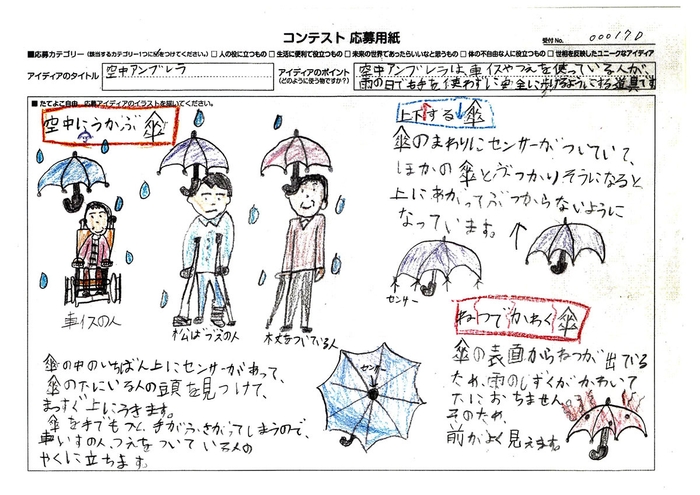 コンテスト 応募用紙
受付No. 00017D
■応募カテゴリー(該当するカテゴリー1つに☑をつけてください。) □ 人の役に立つもの □ 生活に便利で役立つもの □ 未来の世界であったらいいなと思うもの □ 体の不自由な人に役立つもの □ 世相を反映したユニークなアイディア
アイディアのタイトル
空中アンブレラ
アイディアのポイント
(どのように使う物ですか?)
空中アンブレラは、車イスやつえを使っている人が、
雨の日でも手を使わずに安全に歩けるようにする道具です
■ たてよこ自由。応募アイディアのイラストを描いてください。
空中にうかぶ傘
車イスの人
松ばづえの人
杖をついている人
傘の中のいちばん上にセンサーがあって、
傘の下にいる人の頭を見つけて、
まっすぐ上にうきます。
傘を手でもつと、手がふさがってしまうので、
車いすの人、つえをついている人の
やくに立ちます。
センサー
上下する傘
傘のまわりにセンサーがついていて、
ほかの傘とぶつかりそうになると
上にあがってぶつからないように
なっています。
センサー
ねつでかわく傘
傘の表面からねつが出ている
ため、雨のしずくがかわいて
下におちません。
そのため、
前がよく見えます。